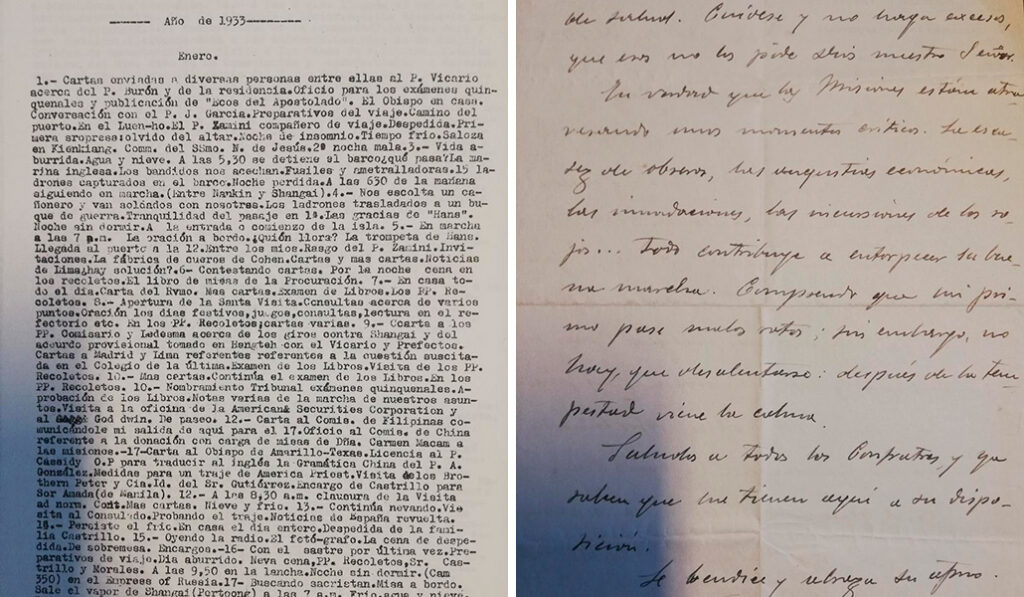 ----- Año de 1933-------
Enero.
1.- Cartas enviadas a diversas personas entre ellas al P. Vicario
acerca del P. Burón y de la residencia.Oficio para los exámenes quin-
quenales y publicación de "Ecos del Apostolado". El Obispo en casa.
Conversación con el P. J. García.Preparativos del viaje.Camino del
puerto.En el Luen-ho.El P. Zamini compañero de viaje.Despedida.Pri-
mera sropress:olvido del altar.Noche de insomnio.Tiempo frío.Saloza
en Kienkiang. Comm. del SSmo. N. de Jesús.2ª nocha mala.3.- Vida a-
burrida.Agua y nieve. A las 5,30 se detiene el barco¿qué pasa?La ma-
rina inglesa.Los bandidos nos acechan.Fusiles y ametralladoras.15 la-
drones capturados en el barco.Noche perdida.A las 630 de la mañana
siguiendo en marcha.(Entre Nankin y Shangai).4.- Nos escolta un ca-
ñonero y van soldados con nosotros.Los ladrones trasladados a un bu-
que de guerra.Tranquilidad del pasaje en 1ª.Las gracias de "Hans".
Noche sin dormir.A la entrada o comienzo de la isla. 5.- En marcha
a las 7 a.m. La oración a bordo.¿Quién llora? La trompeta de Hans.
Llegada al puerto a la 12.Entre los mios.Rasgo del P. Zamini.Invi-
taciones.La fábrica de cueros de Cohen.Cartas y mas cartas.Noticias
de Lima¿hay solución?.6- Contestando cartas. Por la noche cena en
los recoletos.El libro de misas de la Procuración. 7.- En casa to-
do el día.Carta del Rvmo. Mas cartas.Examen de Libros.Los PP. Re-
coletos. 8.- Apertura de la Santa Visita.Consultas acerca de varios
puntos.Oración los días festivos,juegos,consultas,lectura en el re-
fectorio etc. En los PP. Recoletos;cartas varias. 9.- Ccarta a los
PP. Comisario y Ledesma acerca de los giros contra Shangai y del
acuerdo provisional tomado en Hengteh con el Vicario y Prefectos.
Cartas a Madrid y Lima referentes referentes a la cuestión suscita-
da en el Colegio de la última.Examen de los Libros.Visita de los PP.
Recoletos. 10.- Mas certas.Continúa el examen de los Libros.En los
PP. Recoletos. 10.- Nombramiento Tribunal exámenes quinquenales.A-
probación de los Libros.Notas varias de la marcha de nuestros asun-
tos.Visita a la oficina de la American& Securities Corporation y
al God dwin. De paseo. 12.- Carta al Comis. de Filipinas co-
municándole mi salida de aqui para el 17.Oficio al Comis. de China
referente a la donación con carga de misas de Dña. Carmen Macam a
las misiones.-17-Carta al Obispo de Amarillo-Texas.Licencia al P.
Cassidy O.P para traducir al inglés la Gramática China del P. A.
González.Medidas para un traje de America Priest.Visita delos Bro-
thern Peter y Cia.Id. del Sr. Gutiérrez.Encargo de Castrillo para
Sor Amada(de Manila). 12.- A las 8,30 a.m. clausura de la Visita
ad norm. Cont.Mas cartas. Nieve y frio. 13.- Continúa nevando.Vi-
sita al Consulado.Probando el traje.Noticias de España revuelta.
14.- Persiste el frio.En casa el día entero.Despedida de la fami-
lia Castrillo. 15.- Oyendo la radio.El fotó-grafo.La cena de despe-
dida.De sobremesa. Encargos.-16- Con el sastre por última vez.Pre-
parativos de viajo.Día aburrido. Neva cena,PP. Recoletos,Sr. Cas-
trillo y Morales. A las 9,50 en la lancha.Noche sin dormir.(Cam
350) en el Empress of Russia.17- Buscando sacristan.Misa a bordo.
Sale el vapor de Shangai(Pertoong) a las 7 a.m. Frio,agua y nieve.
de salud. Cuídese y no haga excesos,
que esos no los pide Dios nuestro Señor.
En verdad que las Misiones están atra-
vesando unos momentos críticos. La esca-
sez de obreros, las angustias económicas,
las inundaciones, las incursiones de los ro-
jos... todo contribuye a entorpecer la bue-
na marcha. Comprendo que mi pri-
mo pase malos ratos; sin embargo, no
hay que desalentarse: después de la tem-
pestad viene la calma.
Saludos a todos los Confratres y que
saben que me tienen aquí a su dispo-
sición.
Le bendice y abraza su afmo.